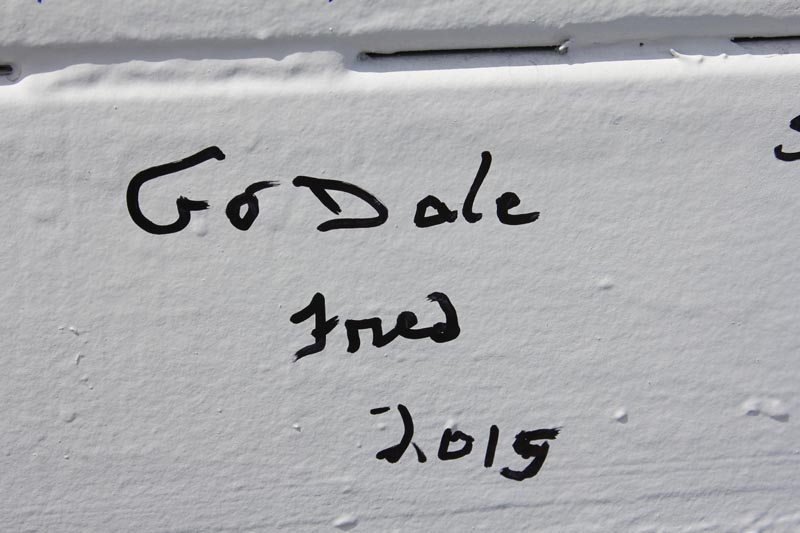 Go Dale
Fred
2015